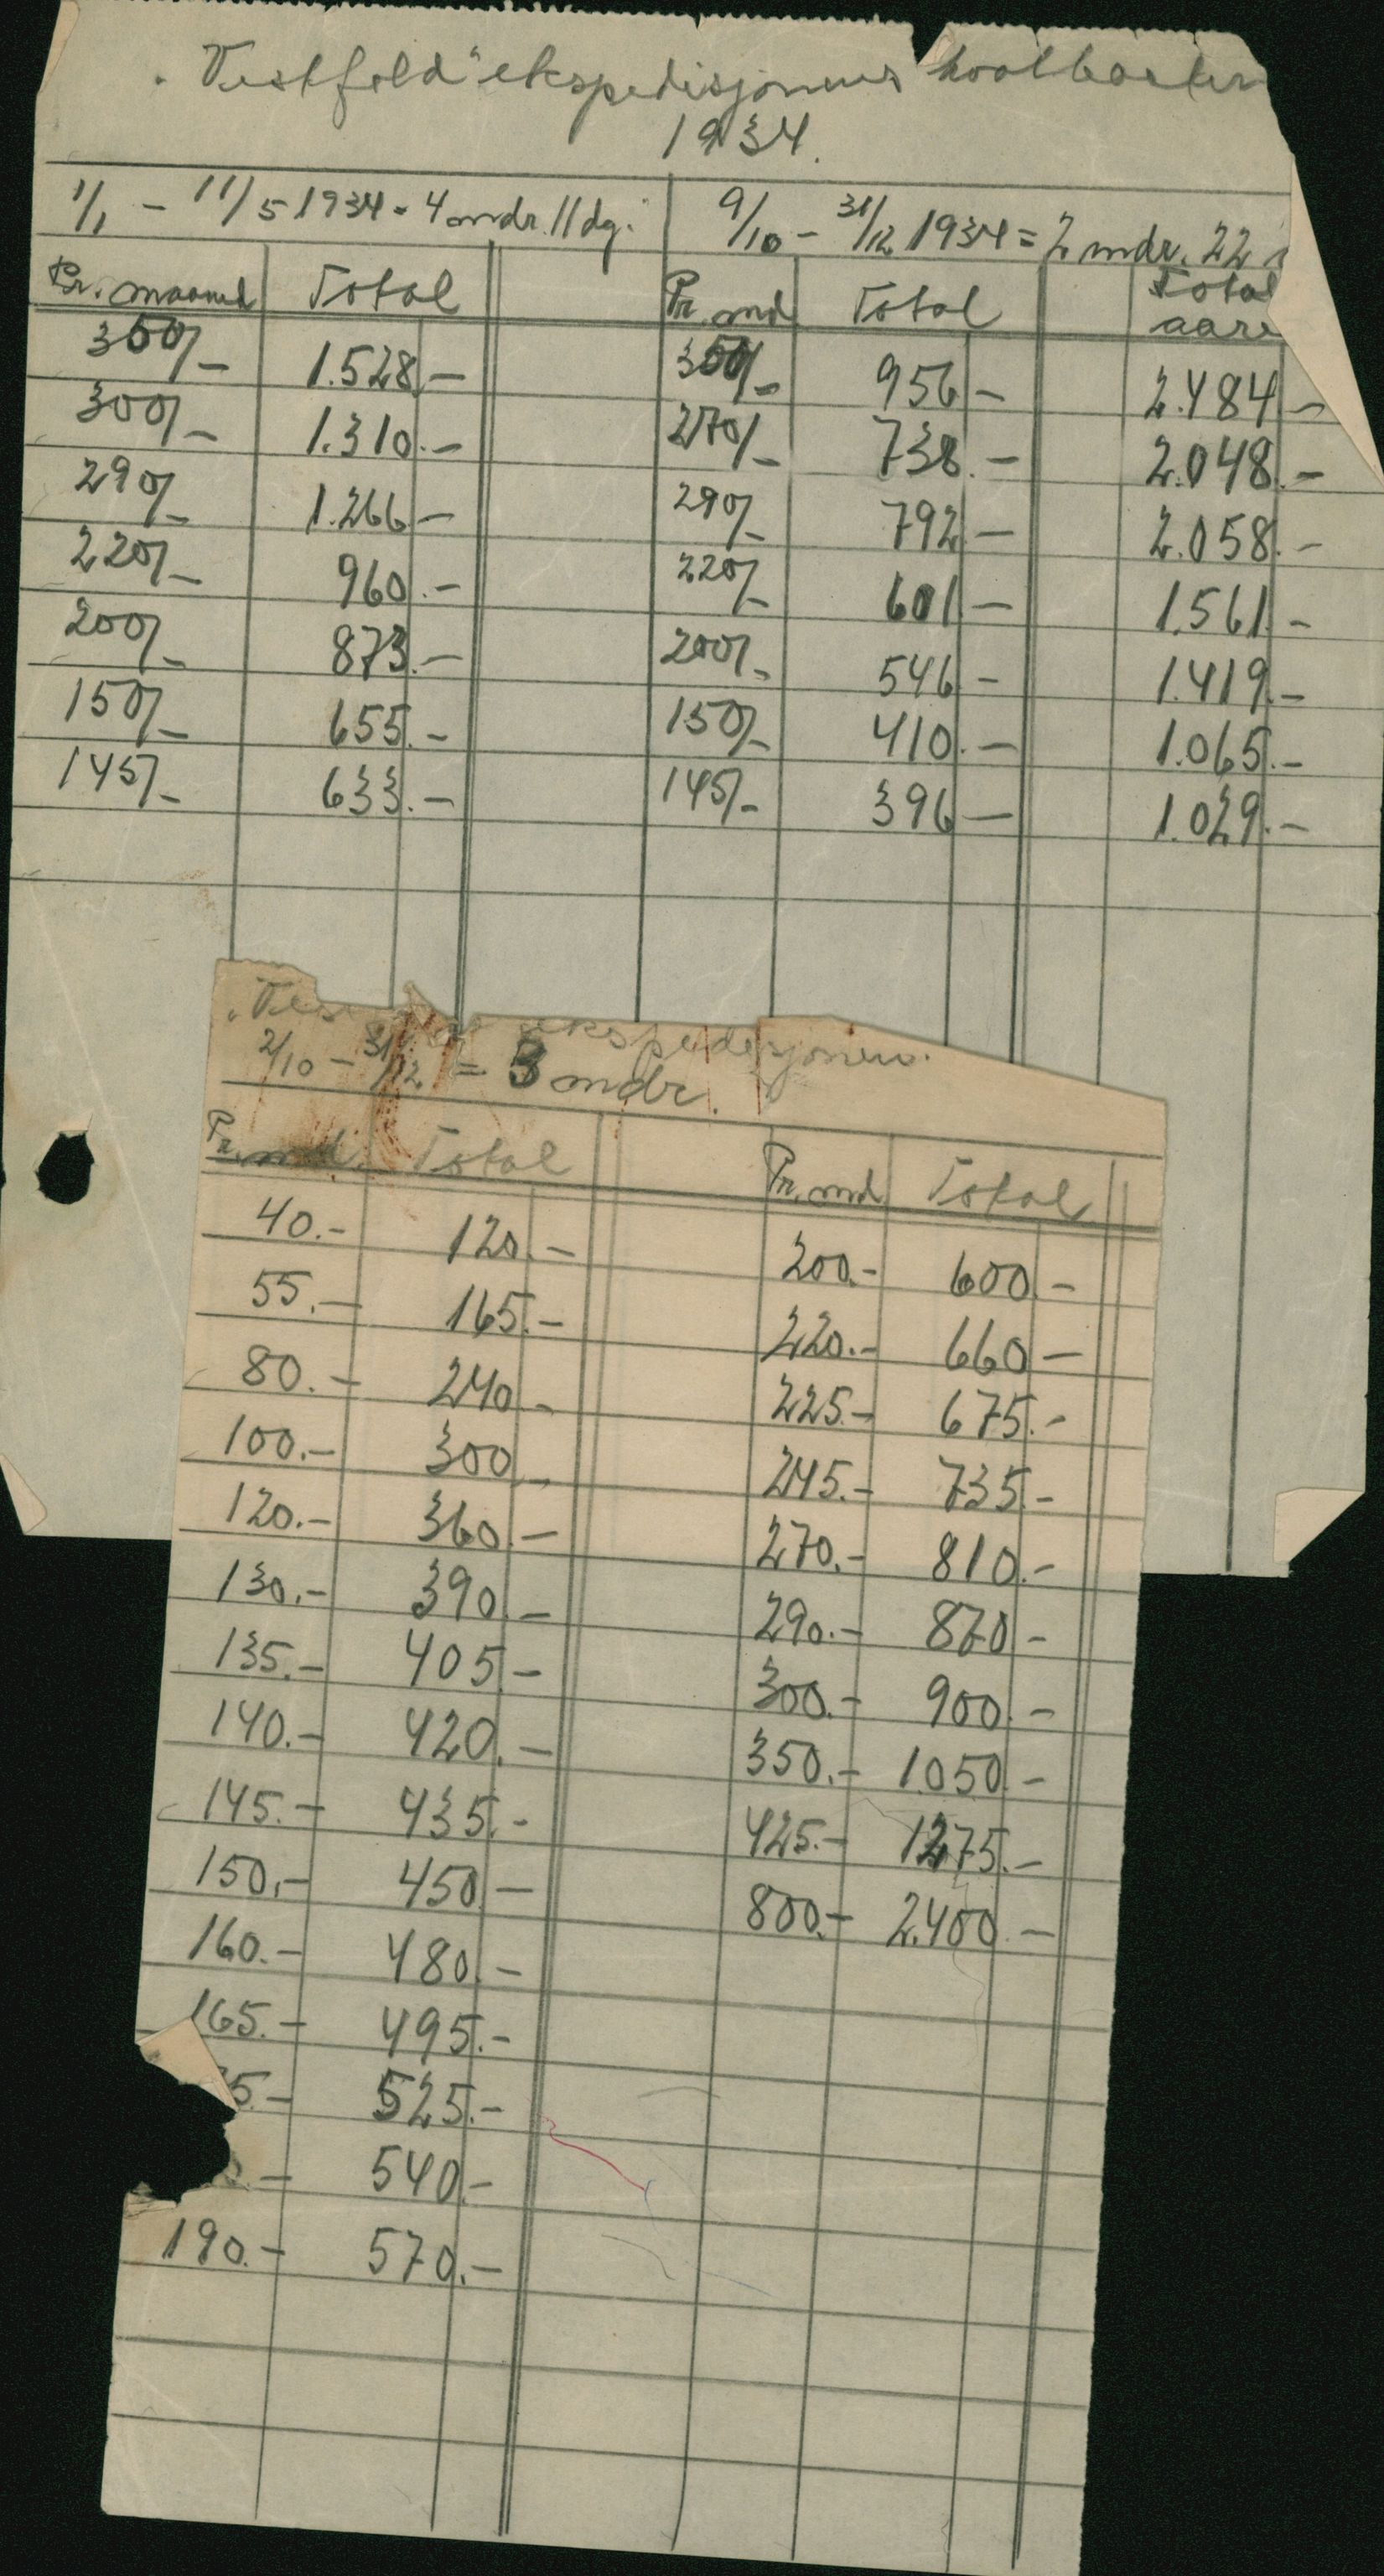 "Vestfold" ekspedisjonens hvalbaater
1934.
1/1 - 11/5 1934 = 4 mdr. 11 dg. 9/10 - 31/12 1934 = 2 mdr. 22
Pr. maaned Total Pr. md Total Total
aare
350/- 1.528.- 350/- 956.- 2.484.-
300/- 1.310.- 270/- 738.- 2.048.-
290/- 1.266.- 290/- 792.- 2.058.-
220/- 960.- 220/- 601.- 1.561.-
200/- 873.- 200/- 546.- 1.419.-
150/- 655.- 150/- 410.- 1.065.-
145/- 633.- 145/- 396.- 1.029.-
ekspedisjonens.
2/10 - 31/12 = 3 mdr.
Pr. md. Total Pr. md. Total
40.- 120.- 200.- 600.-
55.- 165.- 220.- 660.-
80.- 240.- 225.- 675.-
100.- 300.- 245.- 735.-
120.- 360.- 270.- 810.-
130.- 390.- 290.- 870.-
135.- 405.- 300.- 900.-
140.- 420.- 350.- 1.050.-
145.- 435.- 425.- 1275.-
150.- 450.- 800.- 2.400.-
160.- 480.-
165.- 495.-
5.- 525.-
540.-
190.- 570.-